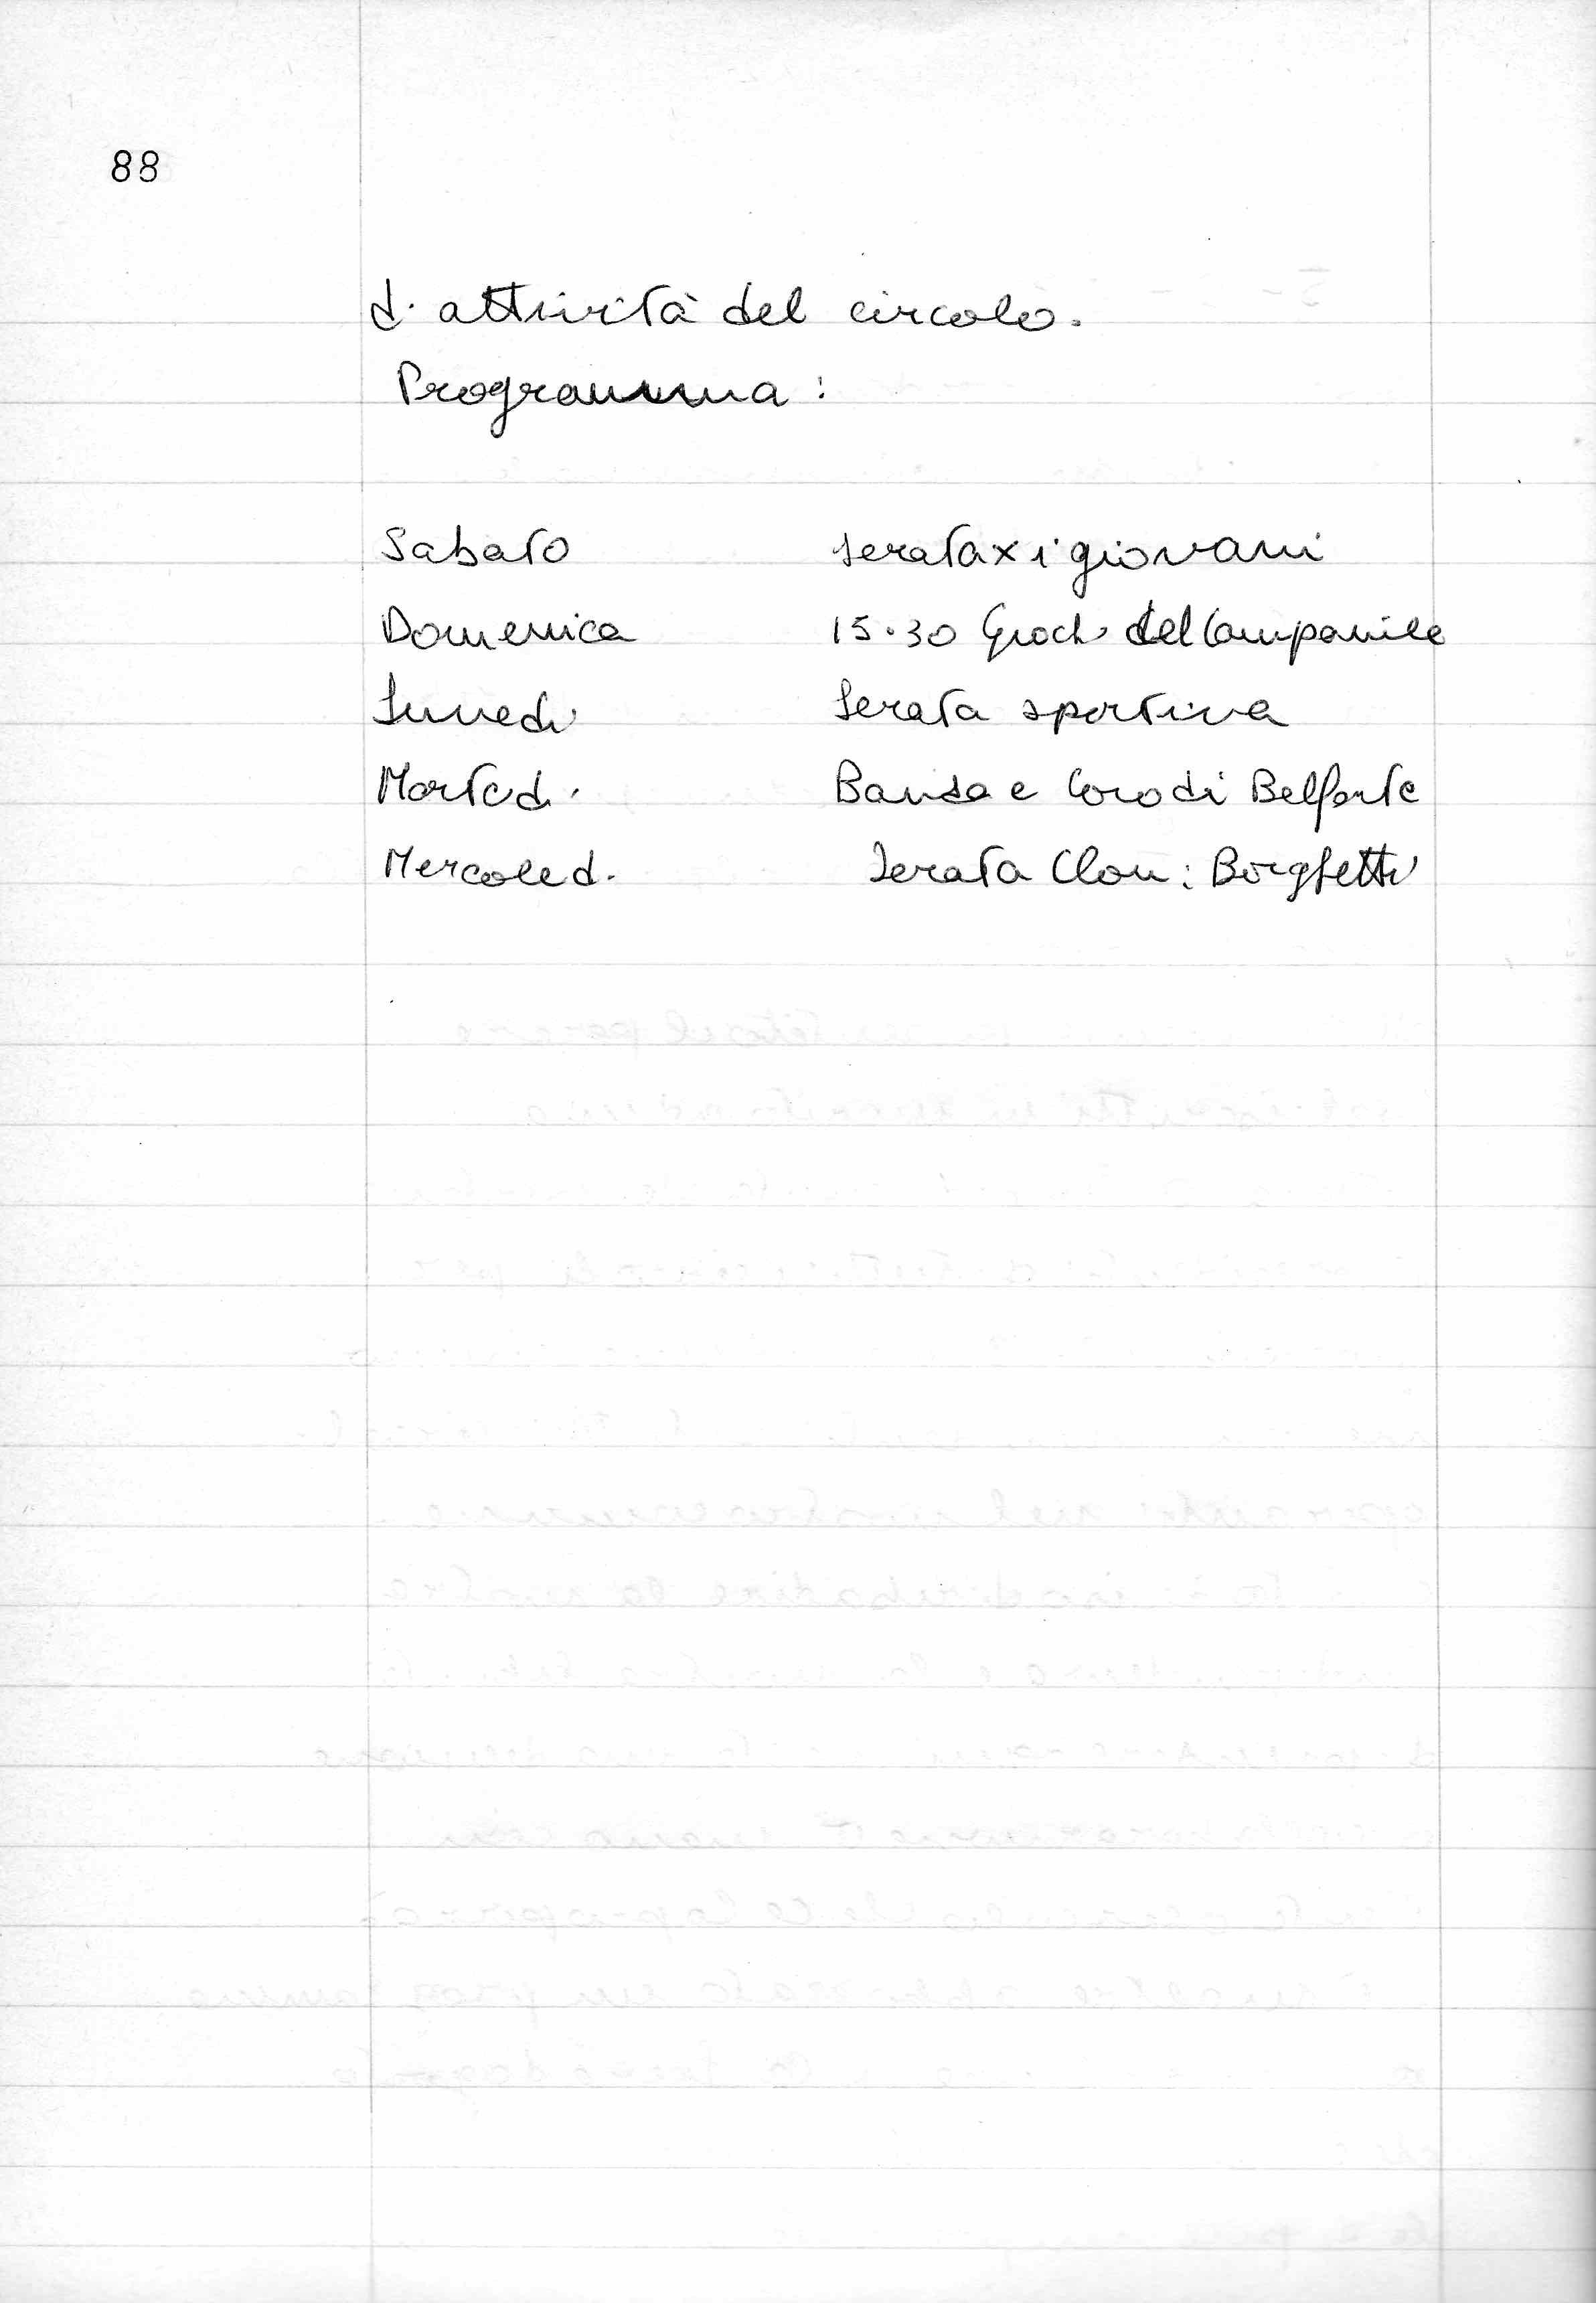 88
di attività del circolo.
Programma:
Sabato serata x i giovani
Domenica 15.30 Giochi del Campanile
Lunedì Serata sportiva
Martedì Banda e Coro di Belforte
Mercoledì Serata Clou: Borghetti